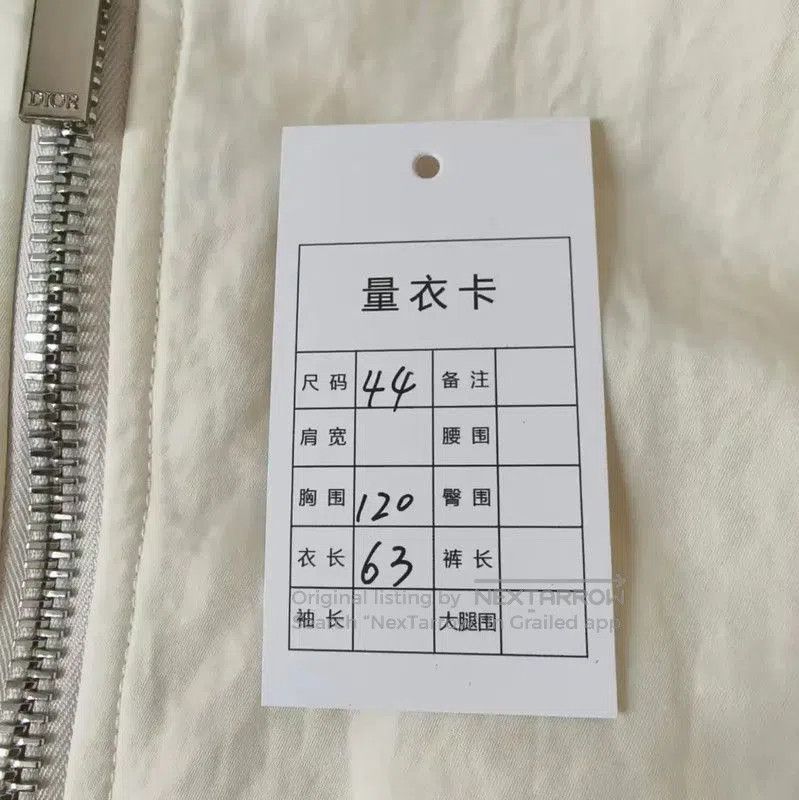 DIOR
量衣卡
尺码 44 备注
肩宽 腰围
胸围 120 臀围
衣长 63 裤长
Original listing by NEXTARROW
Search "NexTarrow" on Grailed app
袖长 大腿围